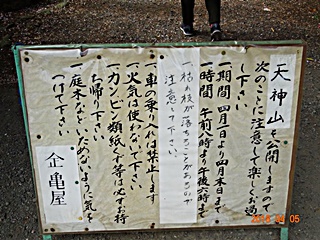 天神山を公開しますので
次のことに注意して楽しくお過
し下さい。
一期間 四月一日より四月末日まで
一時間 午前八時より午後六時まで
一枯れ枝が落ちることがあるので
注意して下さい。
一車の乗り入れは禁止します
一火気は使わないで下さい。
一カン・ビン類紙くず等は必ずお持
ち帰り下さい。
一庭木などいためないように気を
つけて下さい。
企亀屋